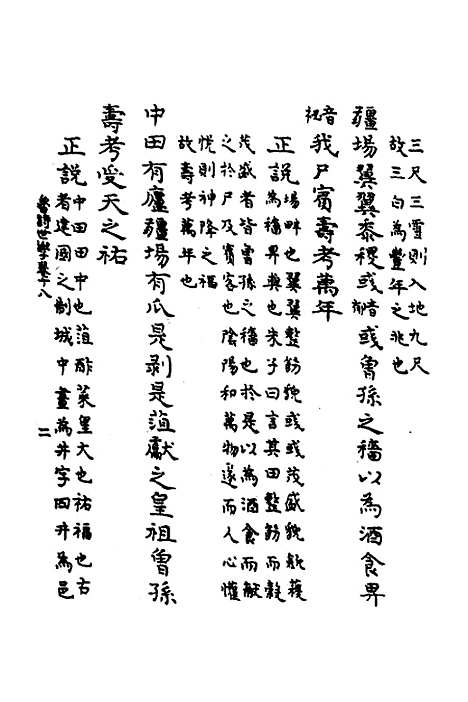 三尺三雪則入地九尺
故三白為豐年之兆也
疆場翼翼黍稷或音或曾孫之穡以為酒食畀
音秘我尸賓壽考萬年
正説場畔也翼翼整飭貌或或茂盛貌穀穫
為穡畀與也朱子曰言其田整飭而穀
茂盛者皆曾孫之穡也於是以為酒食而獻
之於尸及賓客也陰陽和萬物遂而人心懽
悦則神降之福
故壽考萬年也
中田有廬疆場有瓜是剥是菹獻之皇祖曾孫
壽考受天之祜
正説中田田中也菹酢菜皇大也祜福也古
者建國之制城中畫為井字四井為邑
魯詩世學卷十八
二